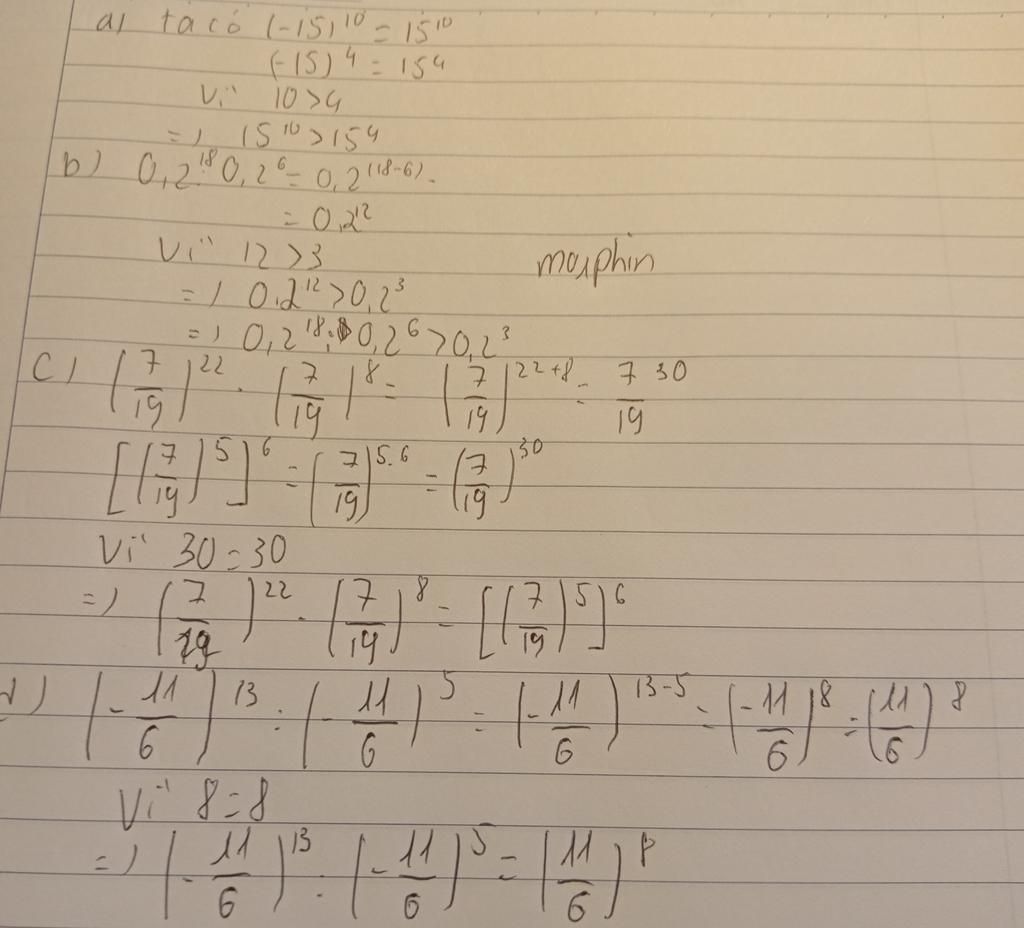 a) ta có (-15)^10 = 15^10
(-15)^4 = 15^4
Vì 10 > 4
=) 15^10 > 15^4
b) 0,2^18 : 0,2^6 = 0,2^(18-6).
= 0,2^12
Vì 12 > 3
morphin
=) 0,2^12 > 0,2^3
=) 0,2^18 : 0,2^6 > 0,2^3
c) (7/19)^22 . (7/19)^8 = (7/19)^22+8 = 7/19^30
[(7/19)^5]^6 = (7/19)^5.6 = (7/19)^30
Vì 30 = 30
=) (7/19)^22 . (7/19)^8 = [(7/19)^5]^6
d) (-11/6)^13 : (-11/6)^5 = (-11/6)^13-5 = (-11/6)^8 = (11/6)^8
Vì 8 = 8
=) (-11/6)^13 : (-11/6)^5 = (11/6)^8